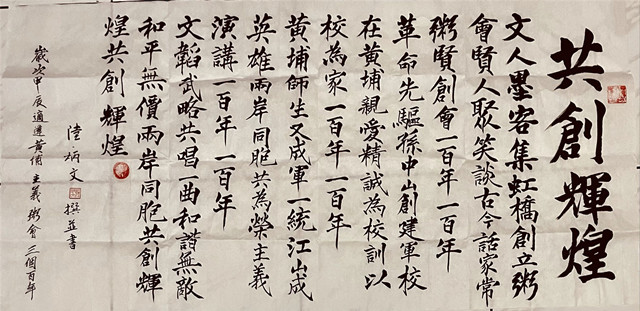 共創輝煌
文人墨客集虹橋創立粥
會賢人聚笑談古今話家常
粥賢創會一百年一百年
革命先驅孫中山創建軍校
在黃埔親愛精誠為校訓以
校為家一百年一百年
黃埔師生又成軍一統江山成
英雄兩岸同胞共為榮主義
演講一百年一百年
文韜武略共唱一曲和諧無敵
和平無價兩岸同胞共創輝
煌共創輝煌
陸炳文撰並書
歲次甲辰適逢黃埔主義粥會三個百年